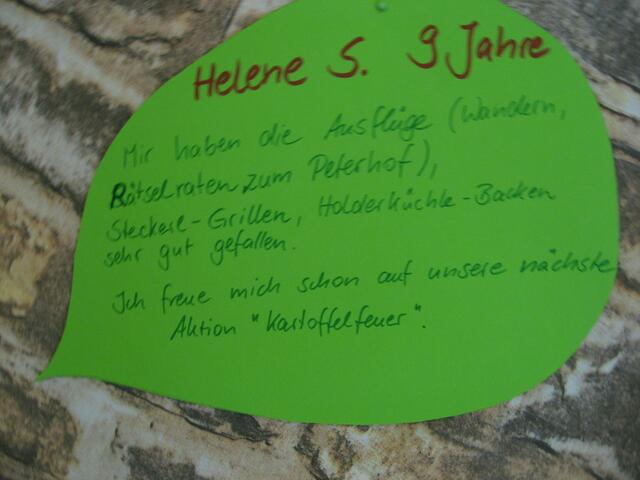 Helene S. 9 Jahre
Mir haben die Ausflüge (Wandern,
Rätselraten zum Peterhof),
Steckerl-Grillen, Holderküchle-Backen
sehr gut gefallen.
Ich freue mich schon auf unsere nächste
Aktion "Kartoffelfeuer".